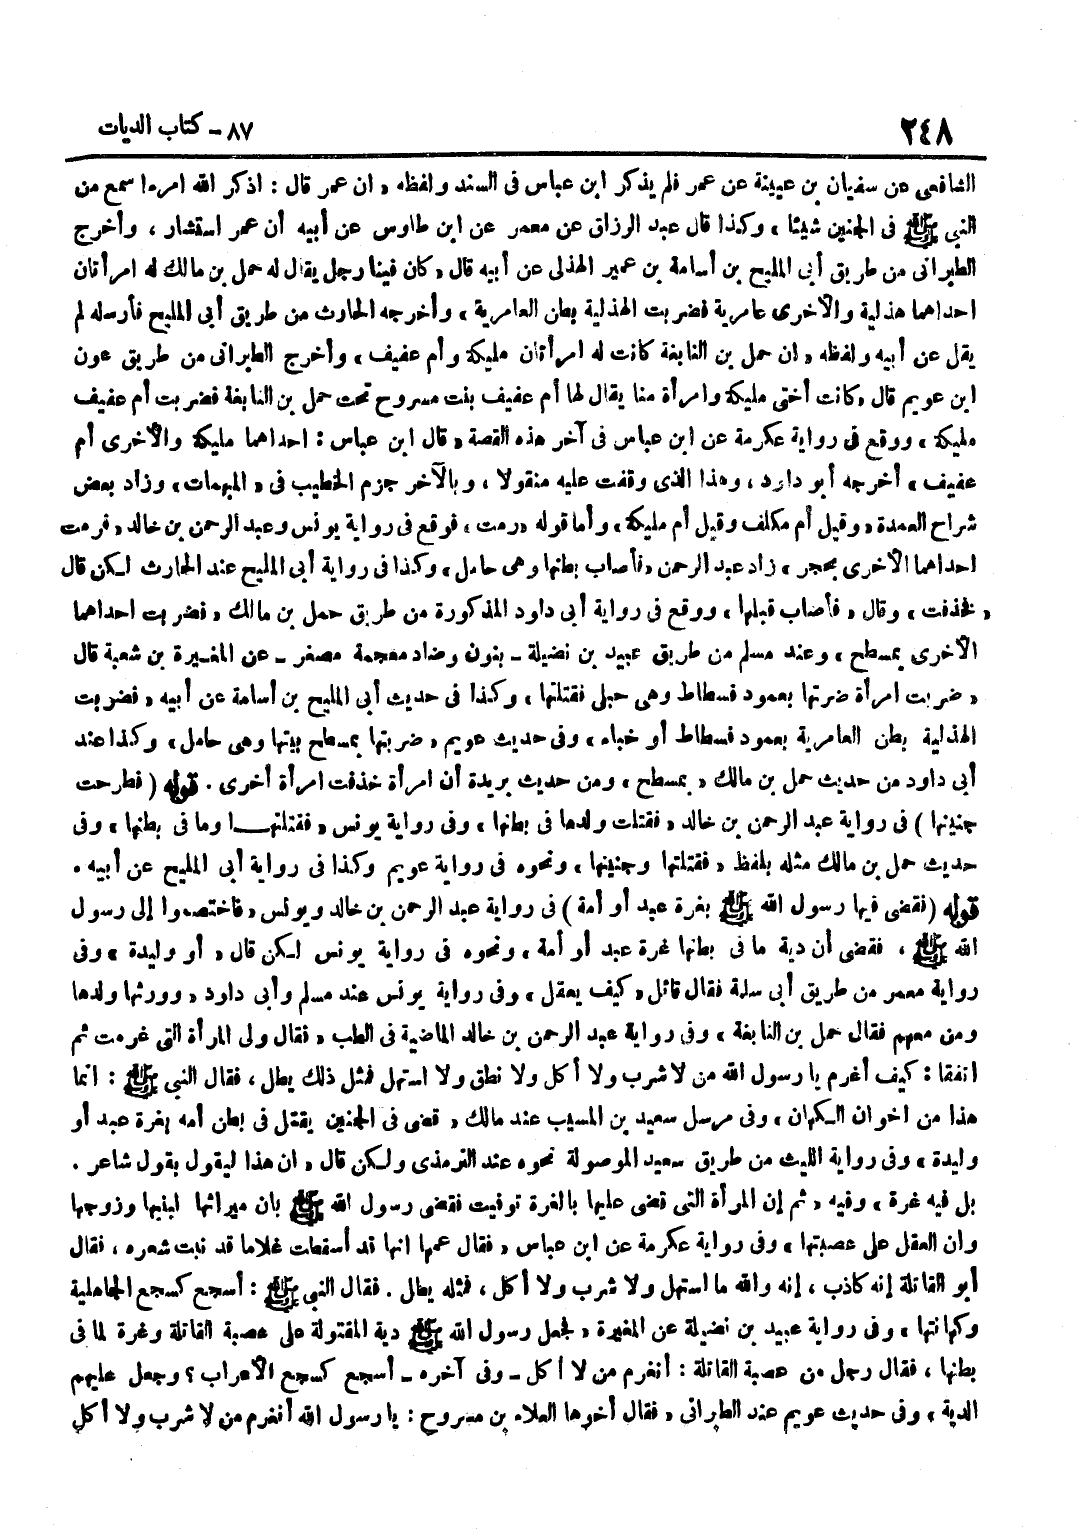 ٢٤٨
٨٧ - كتاب الديات
الشافعى عن سفيان بن عيينة عن عمر فلم يذكر ابن عباس فى السند ولفظه « ان عمر قال : اذكر الله امرءا سمع من
النبى ﷺ فى الجنين شيئا » وكذا قال عبد الرزاق عن معمر عن ابن طاوس عن أبيه أن عمر استشار ، وأخرج
الطبرانى من طريق أبى المليح بن أسامة بن عمير الهذلى عن أبيه قال « كان فينا رجل يقال له حمل بن مالك له امرأتان
احداهما هذلية والأخرى عامرية فضربت الهذلية بطن العامرية » وأخرجه الحارث من طريق أبى المليح فأرسله لم
يقل عن أبيه ولفظه « ان حمل بن النابغة كانت له امرأتان مليكة وأم عفيف » وأخرج الطبرانى من طريق عون
ابن عويم قال «كانت أختى مليكة وامرأة منا يقال لها أم عفيف بنت مسروح تحت حمل بن النابغة فضربت أم عفيف
مليكة » ووقع فى رواية عكرمة عن ابن عباس فى آخر هذه القصة « قال ابن عباس : احداهما مليكة والأخرى أم
عفيف » أخرجه أبو داود ، وهذا الذى وقفت عليه منقولا ، وبالآخر جزم الخطيب فى « المبهمات » وزاد بعض
شراح العمدة « وقيل أم مكلف وقيل أم مليكة » وأما قوله « رمت » فوقع فى رواية يونس وعبد الرحمن بن خالد « فرمت
احداهما الأخرى بحجر » زاد عبد الرحمن « فأصاب بطنها وهى حامل » وكذا فى رواية أبى المليح عند الحارث لكن قال
« فخذفت » وقال « فأصاب قبلها » ووقع فى رواية أبى داود المذكورة من طريق حمل بن مالك « فضربت احداهما
الأخرى بمسطح » وعند مسلم من طريق عبيد بن نضيلة - بنون وضاد معجمة مصغر - عن المغيرة بن شعبة قال
« ضربت امرأة ضرتها بعمود فسطاط وهى حبلى فقتلتها » وكذا فى حديث أبى المليح بن أسامة عن أبيه « فضربت
الهذلية بطن العامرية بعمود فسطاط أو خباء » وفى حديث عويم « ضربتها بمسطح بيتها وهى حامل » وكذا عند
أبى داود من حديث حمل بن مالك « بمسطح » ومن حديث بريدة أن امرأة خذفت امرأة أخرى . قوله ( فطرحت
جنينها ) فى رواية عبد الرحمن بن خالد « فقتلت ولدها فى بطنها » وفى رواية يونس « فقتلتهـــا وما فى بطنها » وفى
حديث حمل بن مالك مثله بلفظ « فقتلتها وجنينها » ونحوه فى رواية عويم وكذا فى رواية أبى المليح عن أبيه .
قوله (فقضى فيها رسول الله ﷺ بغرة عبد أو أمة ) فى رواية عبد الرحمن بن خالد ويونس « فاختصموا إلى رسول
الله ﷺ ، فقضى أن دية ما فى بطنها غرة عبد أو أمة » ونحوه فى رواية يونس لكن قال « أو وليدة » وفى
رواية معمر من طريق أبى سلمة فقال قائل « كيف يعقل » وفى رواية يونس عند مسلم وأبى داود « وورثها ولدها
ومن معهم فقال حمل بن النابغة » وفى رواية عبد الرحمن بن خالد الماضية فى الطب « فقال ولى المرأة التى غرمت ثم
اتفقا : كيف أغرم يا رسول الله من لا شرب ولا أكل ولا نطق ولا استهل فمثل ذلك يطل ، فقال النبى ﷺ : انما
هذا من اخوان الكهان » وفى مرسل سعيد بن المسيب عند مالك « قضى فى الجنين يقتل فى بطن أمه بغرة عبد أو
وليدة » وفى رواية الليث من طريق سعيد الموصولة نحوه عند الترمذى ولكن قال « ان هذا ليقول بقول شاعر .
بل فيه غرة » وفيه « ثم إن المرأة التى قضى عليها بالغرة توفيت فقضى رسول الله ﷺ بان ميراثها لبنيها وزوجها
وان العقل على عصبتها » وفى رواية عكرمة عن ابن عباس « فقال عمها انها قد أسقطت غلاما قد نبت شعره ، فقال
أبو القاتلة إنه كاذب ، إنه والله ما استهل ولا شرب ولا أكل ، فمثله يطل . فقال النبى ﷺ : أسجع كسجع الجاهلية
وكهانتها » وفى رواية عبيد بن نضيلة عن المغيرة « فجعل رسول الله ﷺ دية المقتولة على عصبة القاتلة وغرة لما فى
بطنها ، فقال رجل من عصبة القاتلة : أنغرم من لا أكل - وفى آخره - أسجع كسجع الأعراب ؟ وجعل عليهم
الدية » وفى حديث عويم عند الطبرانى « فقال أخوها العلاء بن مسروح : يا رسول الله أنغرم من لا شرب ولا أكل